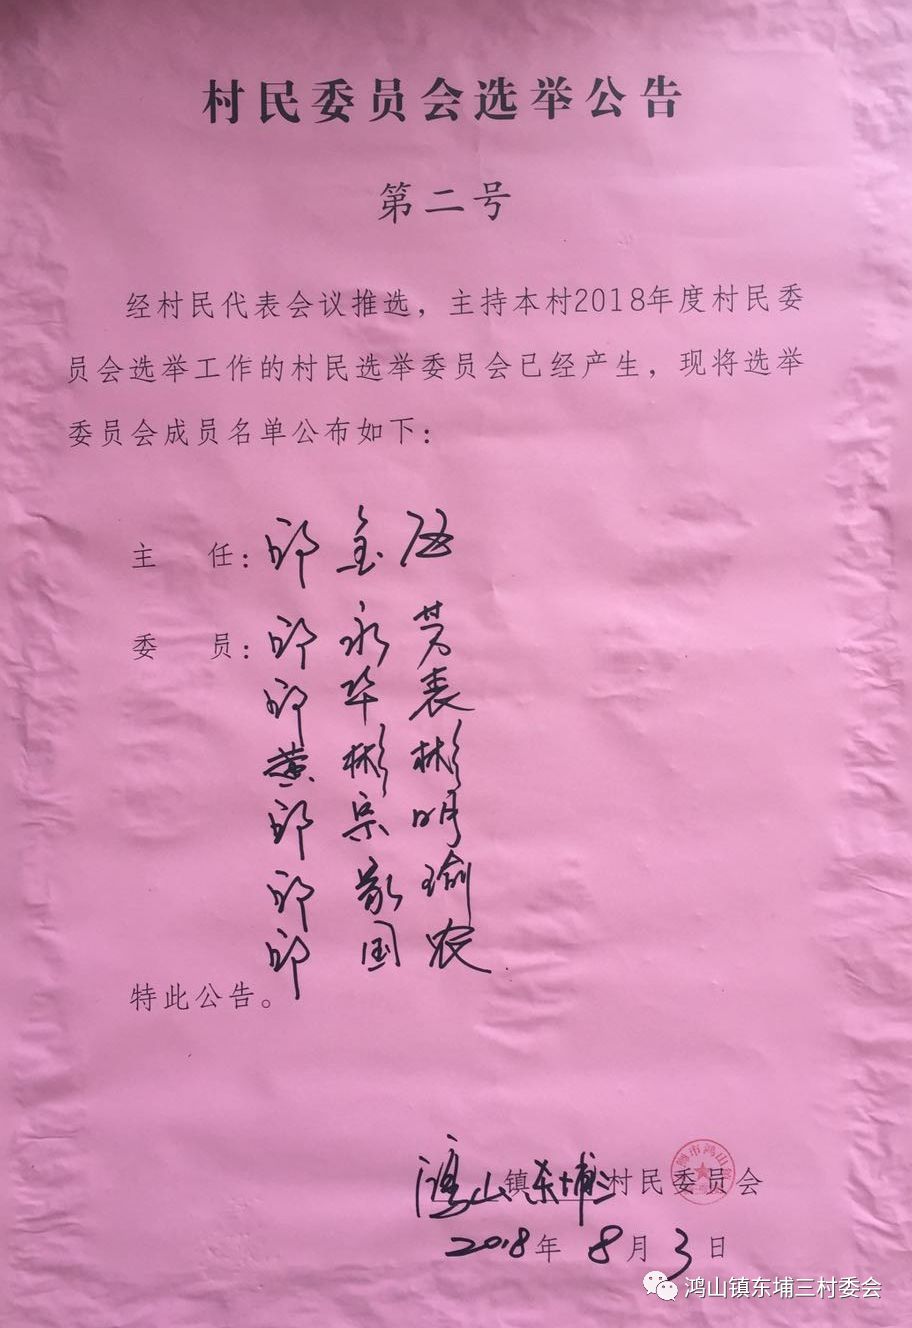 村民委员会选举公告
第二号
经村民代表会议推选，主持本村2018年度村民委
员会选举工作的村民选举委员会已经产生，现将选举
委员会成员名单公布如下：
主 任：邱金
委 员：邱永
邱华表
黄彬彬
邱宗明
邱瑜
邱国农
特此公告。
鸿山镇东埔三村民委员会
2018年8月3日
鸿山镇东埔三村委会